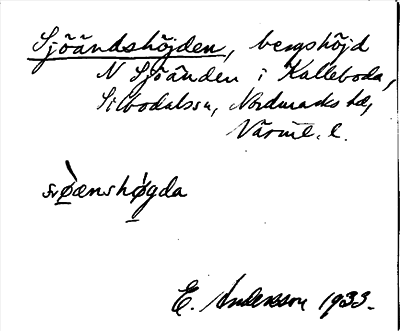 Sjöändshöjden, bergshöjd
N Sjöänden i Kalleboda,
Silbodalssn, Nordmarks hd,
Värml. l.
E. Andersson 1933.